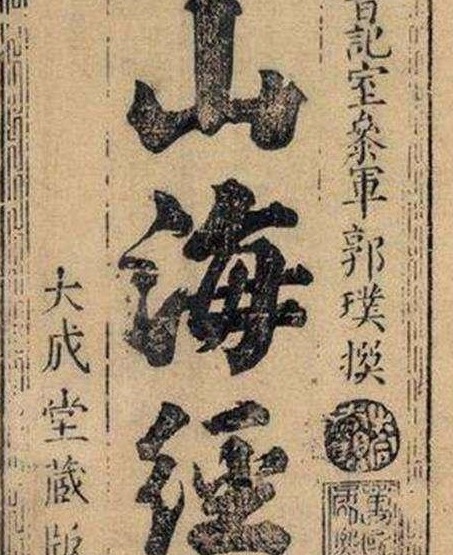 晉記室參軍郭璞撰
山海經
大成堂藏版